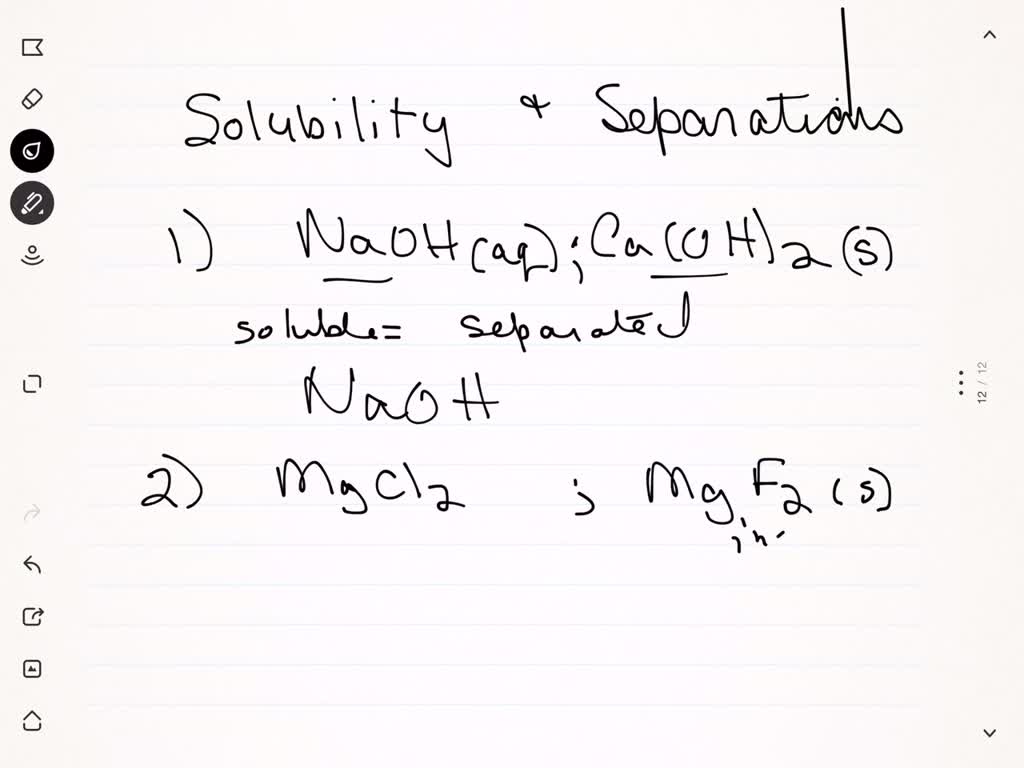 Solubility & Separations
1) NaOH(aq); Ca(OH)2(s)
soluble= separated
NaOH
2) MgCl2 ; MgF2(s)
in.
12 / 12